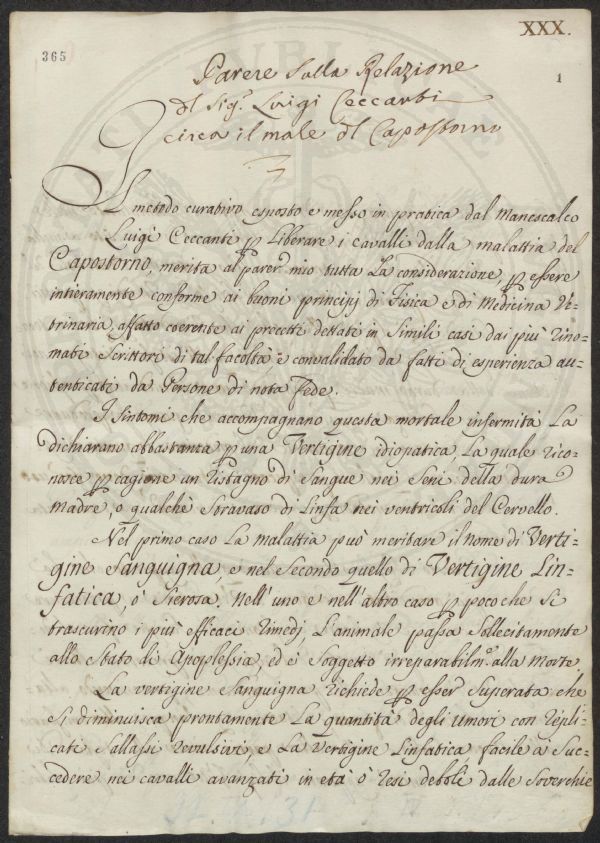 XXX.
365
1
Parere Sulla Relazione
del Sig.r Luigi Ceccanti
circa il male del Capostorno
Il metodo curativo esposto e messo in pratica dal Manescalco
Luigi Ceccanti p Liberare i cavalli dalla malattia del
Capostorno, merita al parer mio tutta La considerazione, p essere
intieramente conforme ai buoni principj di Fisica e di Medicina Ve-
trinaria, affatto coerente ai precetti dettati in Simili casi dai più rino-
mati Scrittori di tal facoltà e convalidato da fatti di esperienza au-
tenticati da Persone di nota Fede.
I Sintomi che accompagnano questa mortale infermità La
dichiarano abbastanza p una Vertigine idiopatica, La quale rico-
nosce p cagione un Ristagno di Sangue nei Seni della dura
Madre, o qualche Stravaso di Linfa nei ventricoli del Cervello.
Nel primo caso La malattia può meritare il nome di Verti-
gine Sanguigna, e nel Secondo quello di Vertigine Lin-
fatica, ò Sierosa. Nell'uno e nell'altro caso p poco che Si
trascurino i più efficaci rimedj, L'animale passa Sollecitamente
allo Stato di Apoplessia, ed è Soggetto irreparabilm.e alla Morte.
La vertigine Sanguigna richiede p esser Superata che
Si diminuisca prontamente La quantità degli umori con repli-
cati Sallassi revulsivi, e La Vertigine Linfatica facile a Suc-
cedere nei cavalli avanzati in età ò resi deboli dalle Soverchie